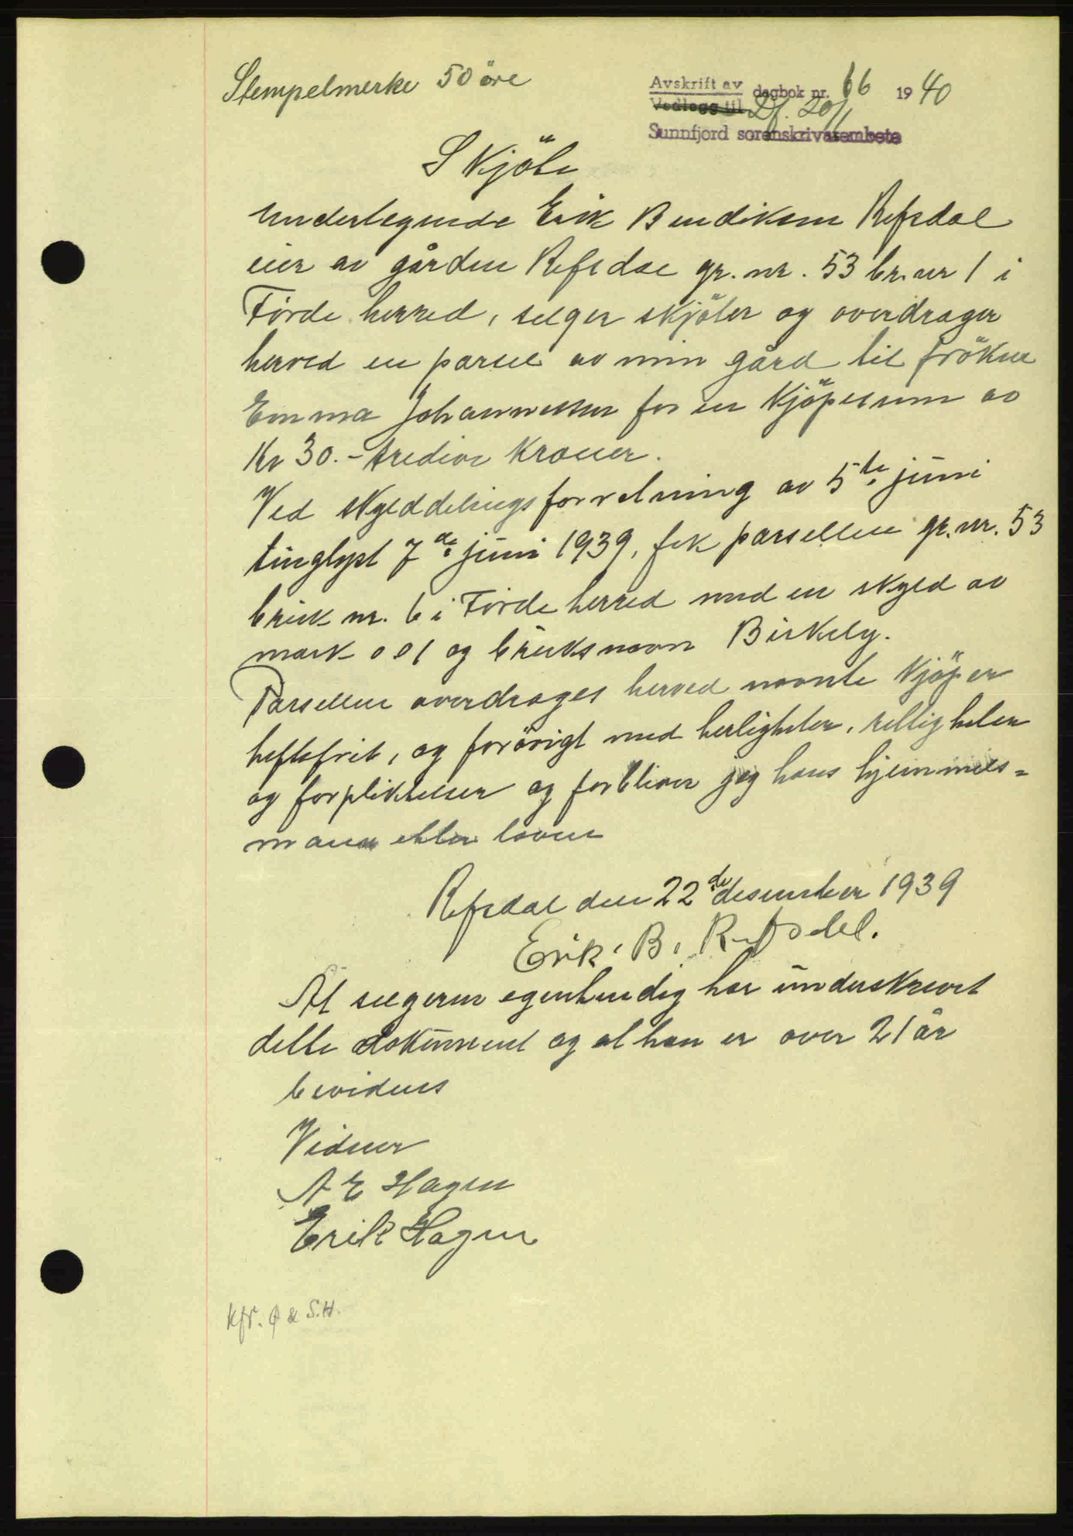 Stempelmerke 50 öre
Avskrift av dagbok nr. 66 1940
Vedlegg til Df. 20/1
Sunnfjord sorenskriverembete
Skjöte
Undertegnede Erik Bendiksen Refsdal
eier av gården Refsdal gr. nr. 53 br. nr 1 i
Førde herred, selger skjöter og overdrager
herved en parsel av min gård til fröken
Emma Johannessen for en kjöpesum av
Kr 30.- tredive kroner.
Ved skylddelingsforretning av 5te juni
tinglyst 7de juni 1939, fik parsellen gr. nr. 53
bruk nr. 6 i Førde herred med en skyld av
mark 0 01 og bruksnavn Birkely.
Parsellen overdrages herved nevnte kjöper
heftefrit, og forövrigt med herligheter, rettigheter
og forpliktelser og forbliver jeg hans hjemmels=
mann efter loven
Refsdal den 22de desember 1939
Erik. B. Refsdal.
At selgeren egenhendig har underskrevet
dette dokument og at han er over 21 år
bevidnes
Vidner
A E Hagen
Erik Hagen
Kfr. Ø & S.H.